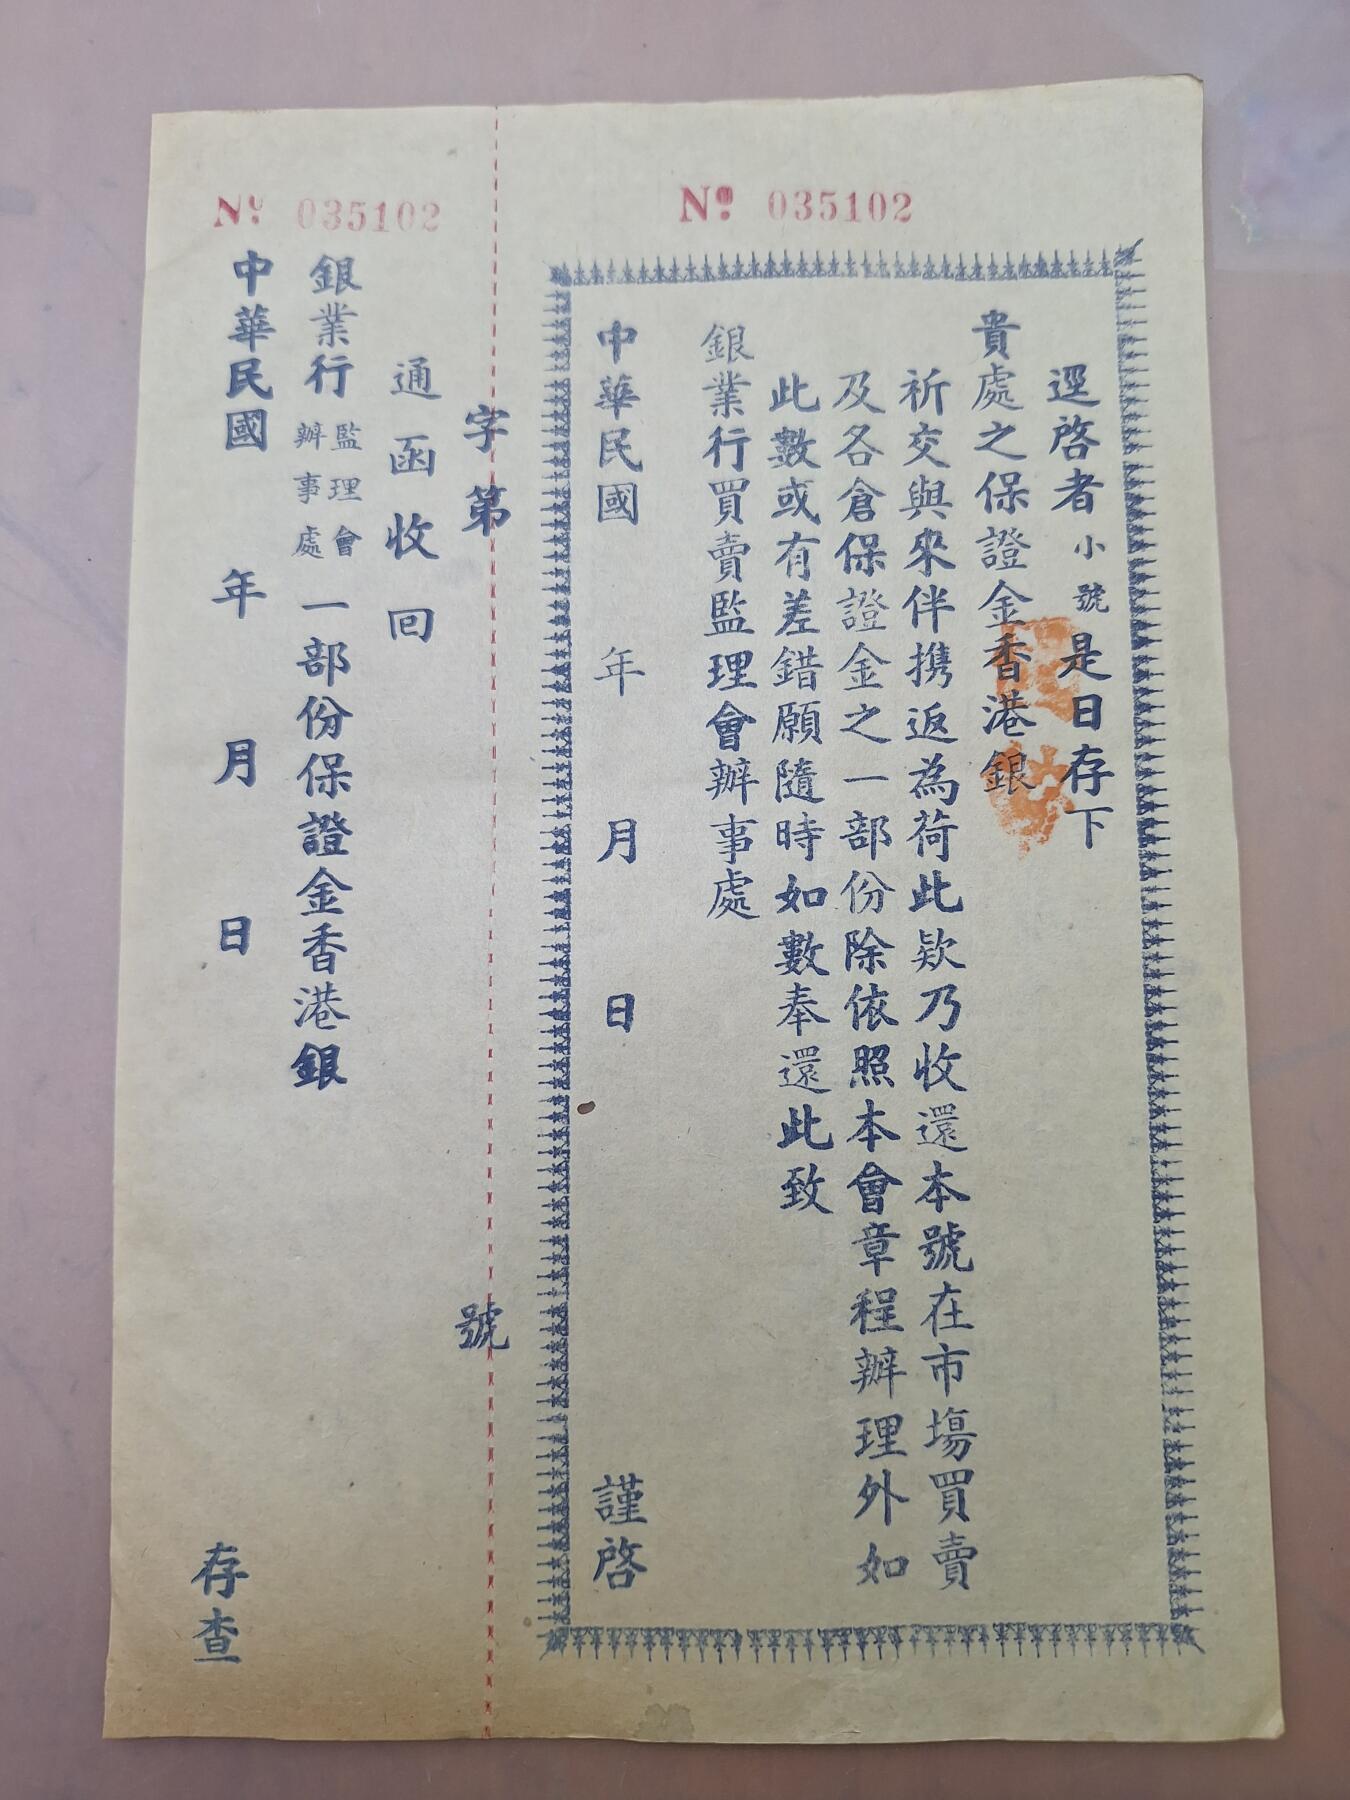 No. 035102
逕啓者小號是日存下
貴處之保證金香港銀
祈交與來伴携返為荷此欵乃收還本號在市塲買賣
及各倉保證金之一部份除依照本會章程辦理外如
此數或有差錯願隨時如數奉還此致
銀業行買賣監理會辦事處
中華民國 年 月 日 謹啓
字第 號
No. 035102
通函收回
銀業行監理會辦事處一部份保證金香港銀
中華民國 年 月 日 存查